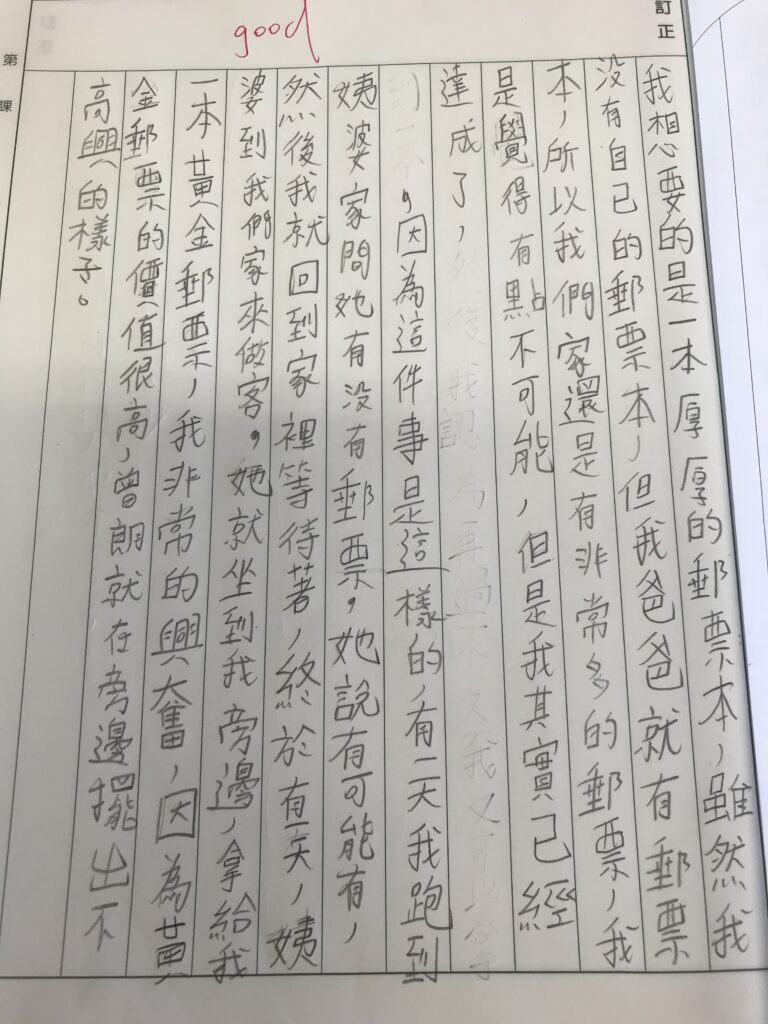 訂正
good
第　課
我想要的是一本厚厚的郵票本，雖然我
沒有自己的郵票本，但我爸爸就有郵票
本，所以我們家還是有非常多的郵票，我
是覺得有點不可能，但是我其實已經
達成了，然後我認為再過不久我又可以拿
到一本，因為這件事是這樣的，有一天我跑到
姨婆家問她有沒有郵票，她說有可能有，
然後我就回到家裡等待著，終於有一天，姨
婆到我們家來做客，她就坐到我旁邊，拿給我
一本黃金郵票，我非常的興奮，因為黃
金郵票的價值很高，曾朗就在旁邊擺出不
高興的樣子。